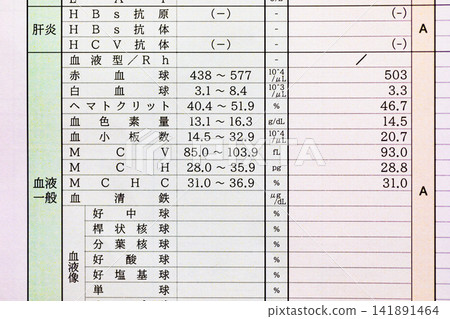 肝炎
HBs抗原 (－) - (-) A
HBs抗体 -
HCV抗体 (－) - (-)
血液型/Rh - /
血液一般
赤血球 438～577 10^4/μL 503
白血球 3.1～8.4 10^3/μL 3.3
ヘマトクリット 40.4～51.9 % 46.7
血色素量 13.1～16.3 g/dL 14.5
血小板数 14.5～32.9 10^4/μL 20.7
MCV 85.0～103.9 fL 93.0
MCH 28.0～35.9 pg 28.8
MCHC 31.0～36.9 % 31.0 A
血清鉄 μg/dL
血液像
好中球 %
桿状核球 %
分葉核球 %
好酸球 %
好塩基球 %
単球 %
141891464